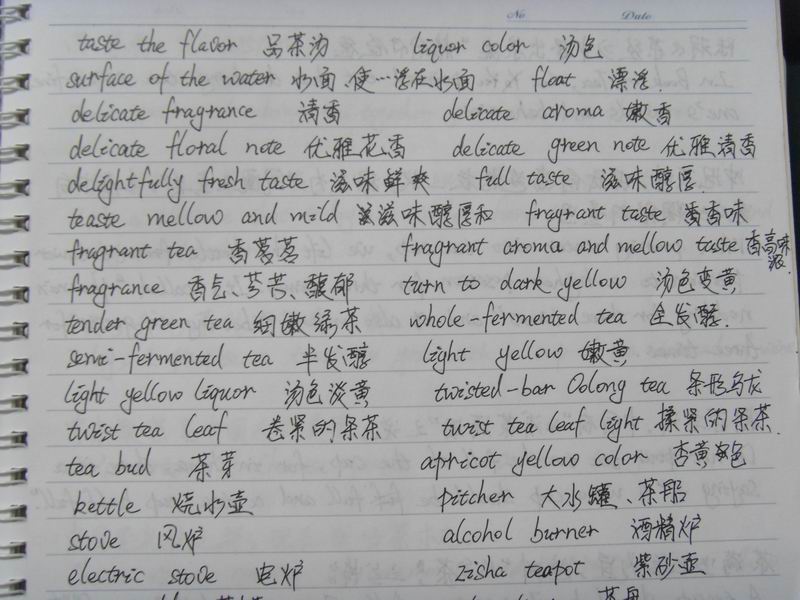 No Date
taste the flavor 品茶汤 liquor color 汤色
surface of the water 水面、使…浮在水面 float 漂浮.
delicate fragrance 清香 delicate aroma 嫩香
delicate floral note 优雅花香 delicate green note 优雅清香
delightfully fresh taste 滋味鲜爽 full taste 滋味醇厚
teaste mellow and mild 滋味醇厚和 fragrant taste 香味
fragrant tea 香茗 fragrant aroma and mellow taste 香高味浓.
fragrance 香气、芬芳、馥郁 turn to dark yellow 汤色变黄
tender green tea 细嫩绿茶 whole-fermented tea 全发酵.
semi-fermented tea 半发酵 light yellow 嫩黄
light yellow liquor 汤色淡黄 twisted-bar Oolong tea 条形乌龙
twist tea leaf 卷紧的条茶 twist tea leaf light 揉紧的条茶.
tea bud 茶芽 apricot yellow color 杏黄色
kettle 烧水壶 pitcher 大水罐、茶船
stove 风炉 alcohol burner 酒精炉
electric stove 电炉 zisha teapot 紫砂壶